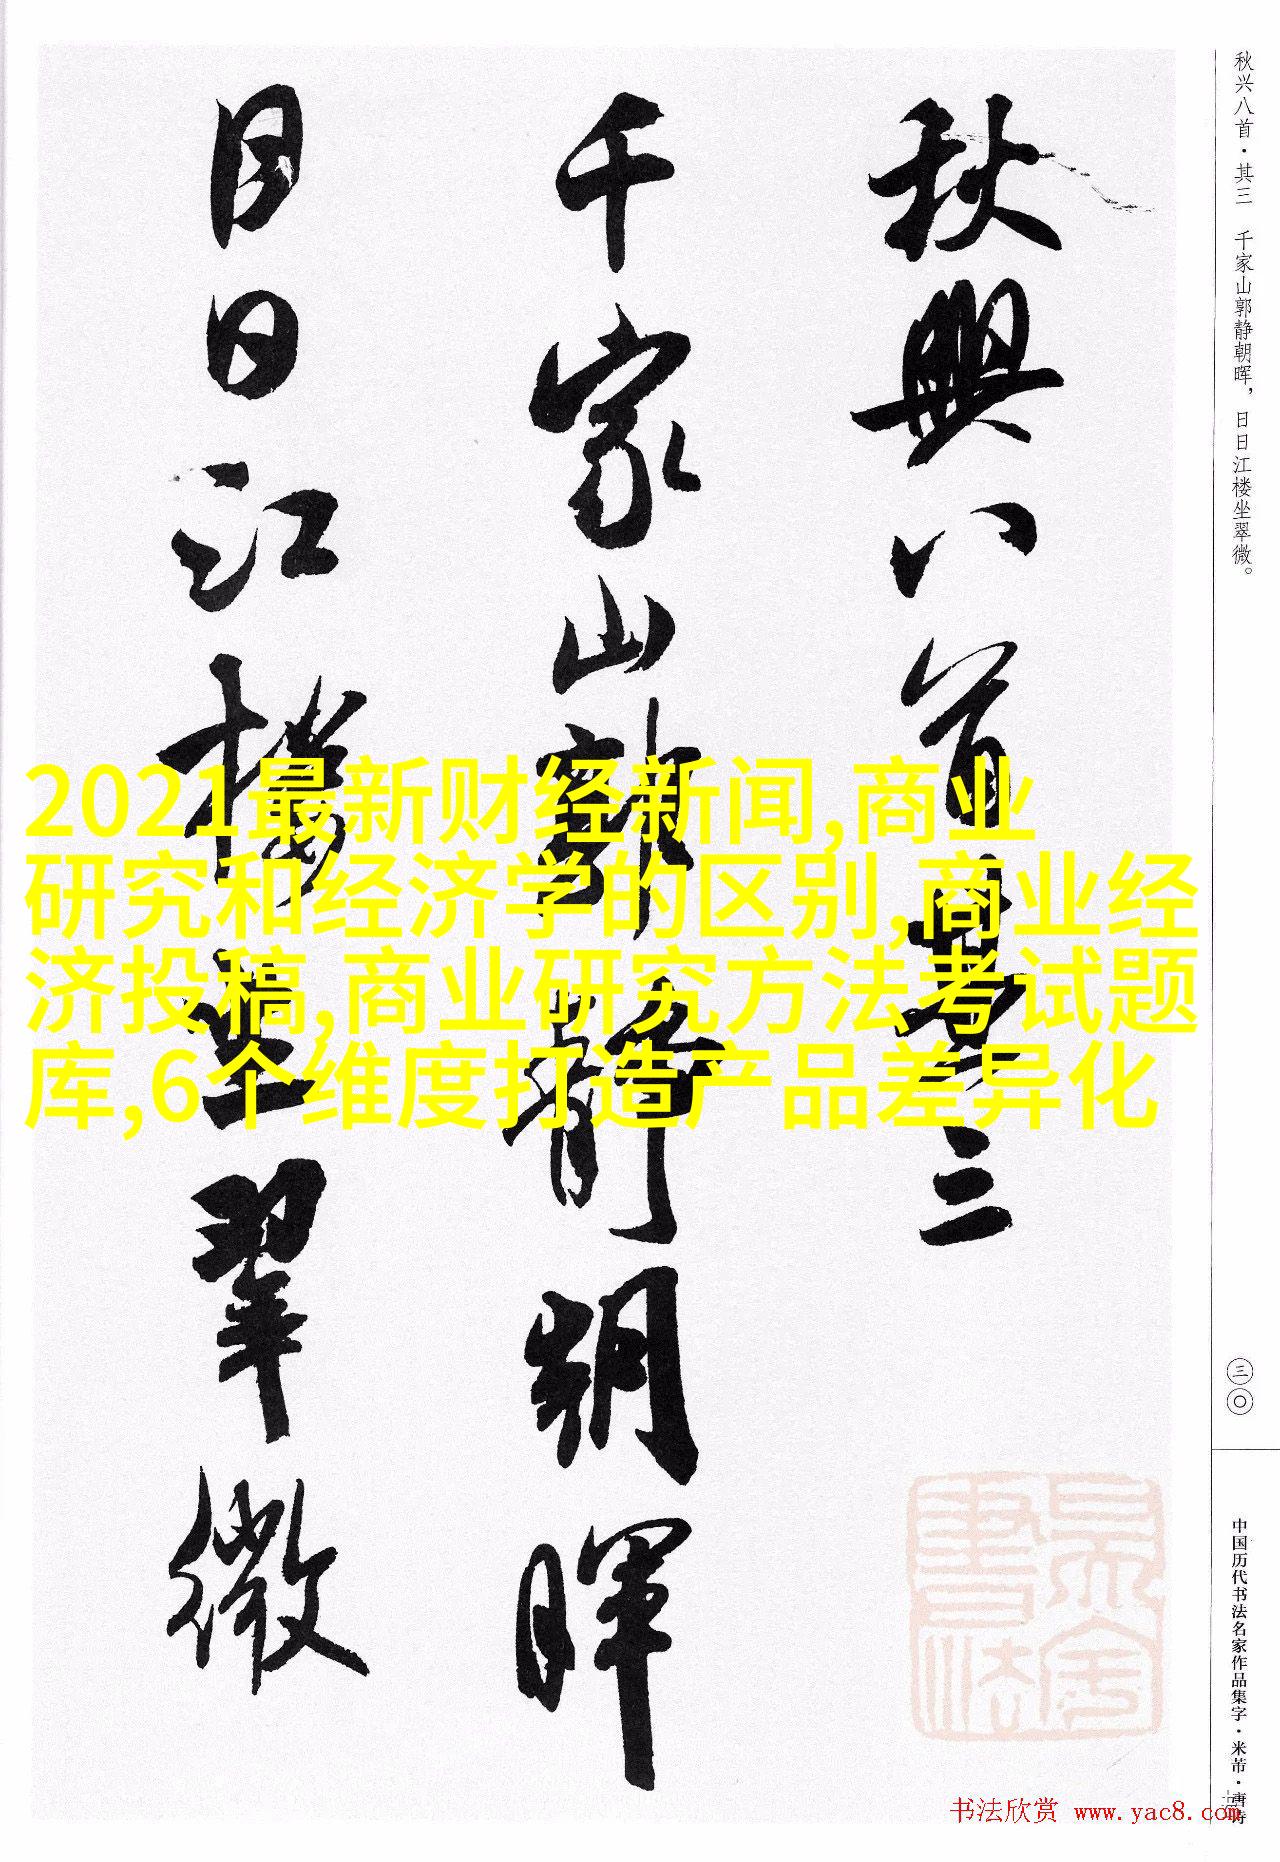 秋兴八首·其三 千家山郭静朝晖，日日江楼坐翠微。
秋興八首其三
千家山郭静朝暉
日日江樓坐翠微
2021最新财经新闻,商业
研究和经济学的区别,商业经
济投稿,商业研究方法考试题
库,6个维度打造产品差异化
三〇
中国历代书法名家作品集字·米芾·唐诗
书法欣赏 www.yac8.com